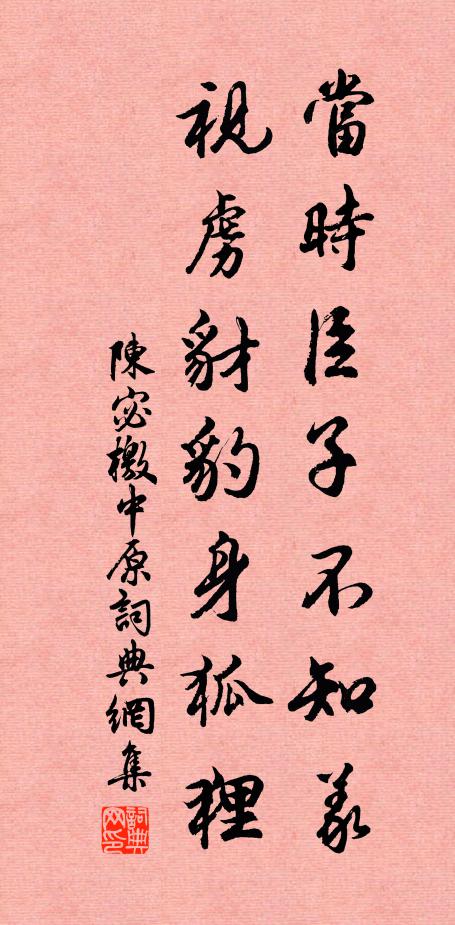 當時臣子不知義
視虜豺豹身狐狸
陳宓檄中原詞典網集
詞典网印